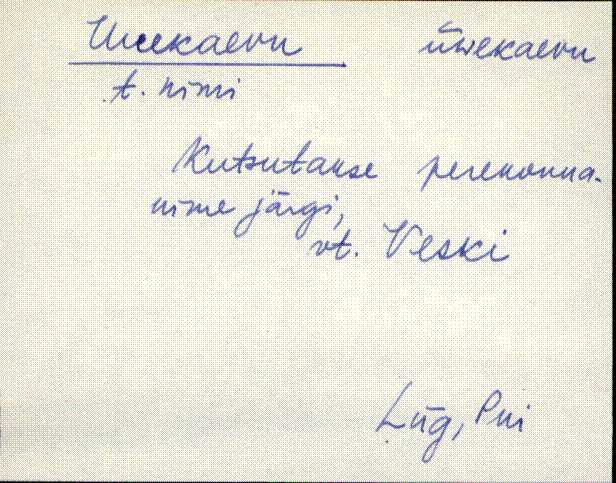 Uuekaevu üwekaevu
t. nimi
Kutsutakse perekonna-
nime järgi,
vt. Veski
Lüg, Pui